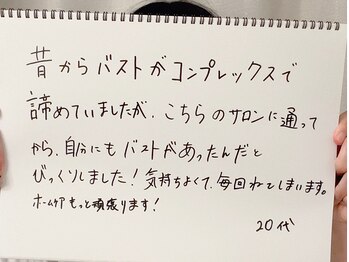 昔からバストがコンプレックスで
諦めていましたが、こちらのサロンに通って
から、自分にもバストがあったんだと
びっくりしました！気持ちよくて、毎回ねてしまいます。
ホームケアもっと頑張ります！
20代